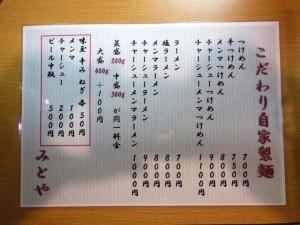 こだわり自家製麺
つけめん 700円
辛つけめん 750円
メンマつけめん 800円
チャーシューつけめん 900円
チャーシューメンマつけめん 1100円
ラーメン 700円
塩ラーメン 800円
メンマラーメン 800円
チャーシューラーメン 900円
チャーシューメンマラーメン 1000円
並盛 200g 中盛 300g が同一料金
大盛 400g +100円
味玉 辛み ねぎ 各50円
メンマ 100円
チャーシュー 200円
ビール中瓶 500円
みとや